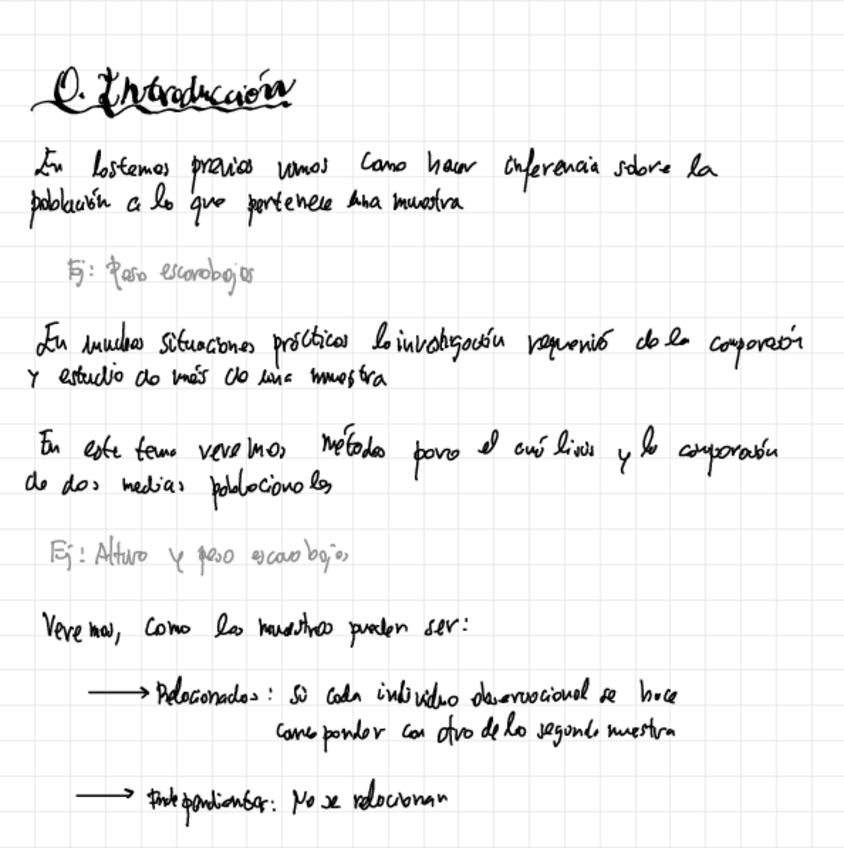 0. Introducción
En los temas previos vimos como hacer inferencia sobre la
población a la que pertenece una muestra
Ej: Peso escarabajos
En muchas situaciones prácticas la investigación requerirá de la comparación
y estudio de más de una muestra
En este tema veremos métodos para el análisis y la comparación
de dos medias poblacionales
Ej: Altura y peso escarabajos
Veremos, como las muestras pueden ser:
→ Relacionadas: Si cada individuo observacional se hace
corresponder con otro de la segunda muestra
→ Independientes: No se relacionan